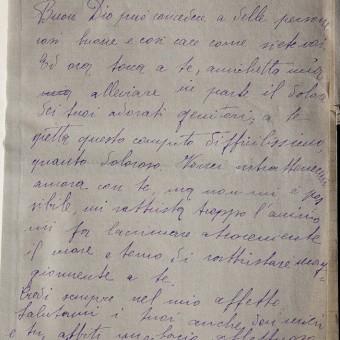 Buon Dio può concedere a delle persone
così buone e così care come siete voi.
Ed ora tocca a te, amichetta mia
alleviare in parte il dolore
dei tuoi adorati genitori, a te
spetta questo compito difficilissimo
quanto doloroso. Vorrei intrattenermi
ancora con te, ma non mi è pos
sibile, mi rattrista troppo l'animo
mi fa lacrimare atrocemente
il cuore e temo di rattristare mag
giormente a te.
Credi sempre nel mio affetto
salutami i tuoi anche
e tu, abbiti un bacio affettuoso